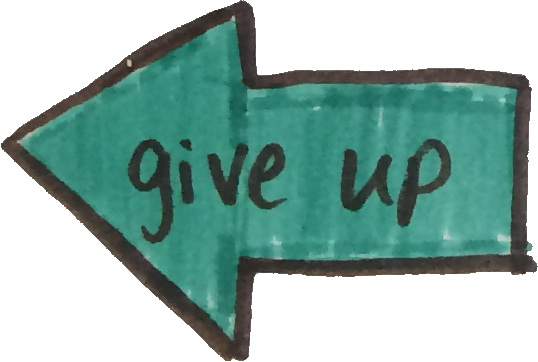 give up